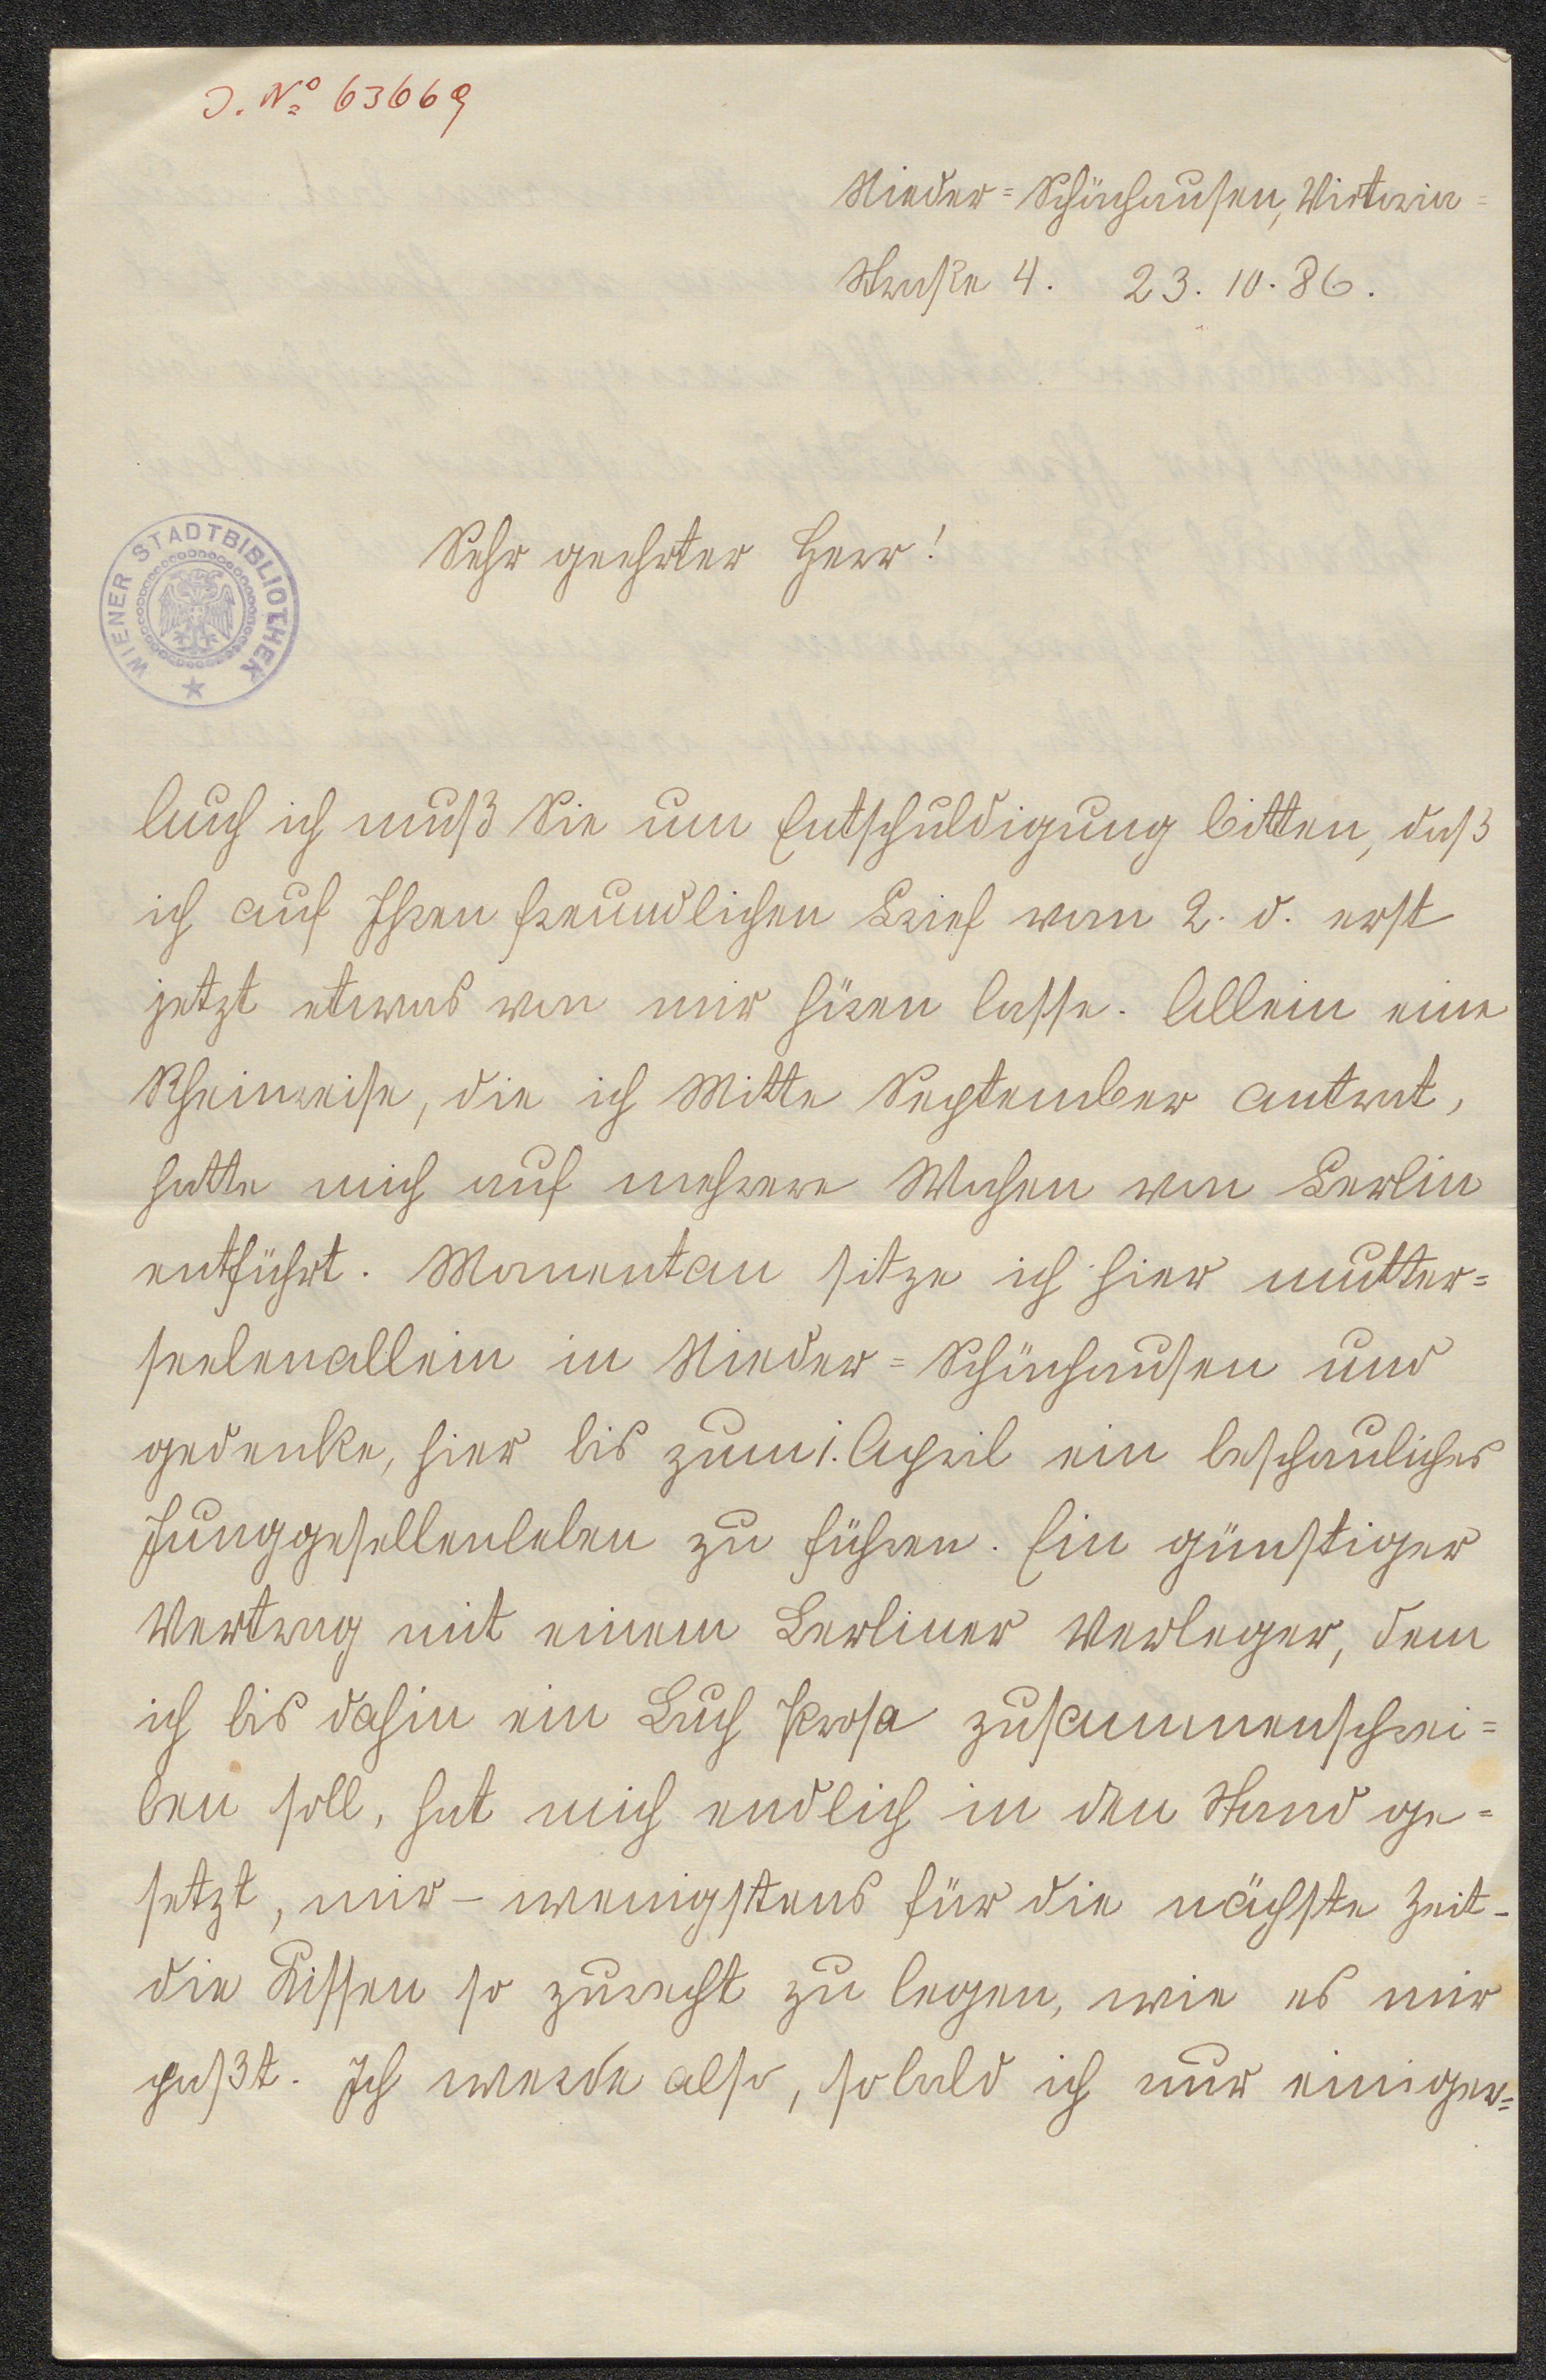 J. No 63669
Nieder=Schönhausen, Victoria=
Straße 4. 23. 10. 86.
WIENER STADTBIBLIOTHEK
Sehr geehrter Herr!
Auch ich muß Sie um Entschuldigung bitten, daß
ich auf Ihren freundlichen Brief vom 2. d. erst
jetzt etwas von mir hören lasse. Allein eine
Rheinreise, die ich Mitte September antrat,
hatte mich auf mehrere Wochen von Berlin
entführt. Momentan sitze ich hier mutter=
seelenallein in Nieder=Schönhausen und
gedenke, hier bis zum 1. April ein beschauliches
Junggesellenleben zu führen. Ein günstiger
Vertrag mit einem Berliner Verleger, dem
ich bis dahin ein Buch Prosa zusammenschrei=
ben soll, hat mich endlich in den Stand ge=
setzt, mir – wenigstens für die nächste Zeit –
die Kissen so zurecht zu legen, wie es mir
paßt. Ich werde also, sobald ich nur einiger=